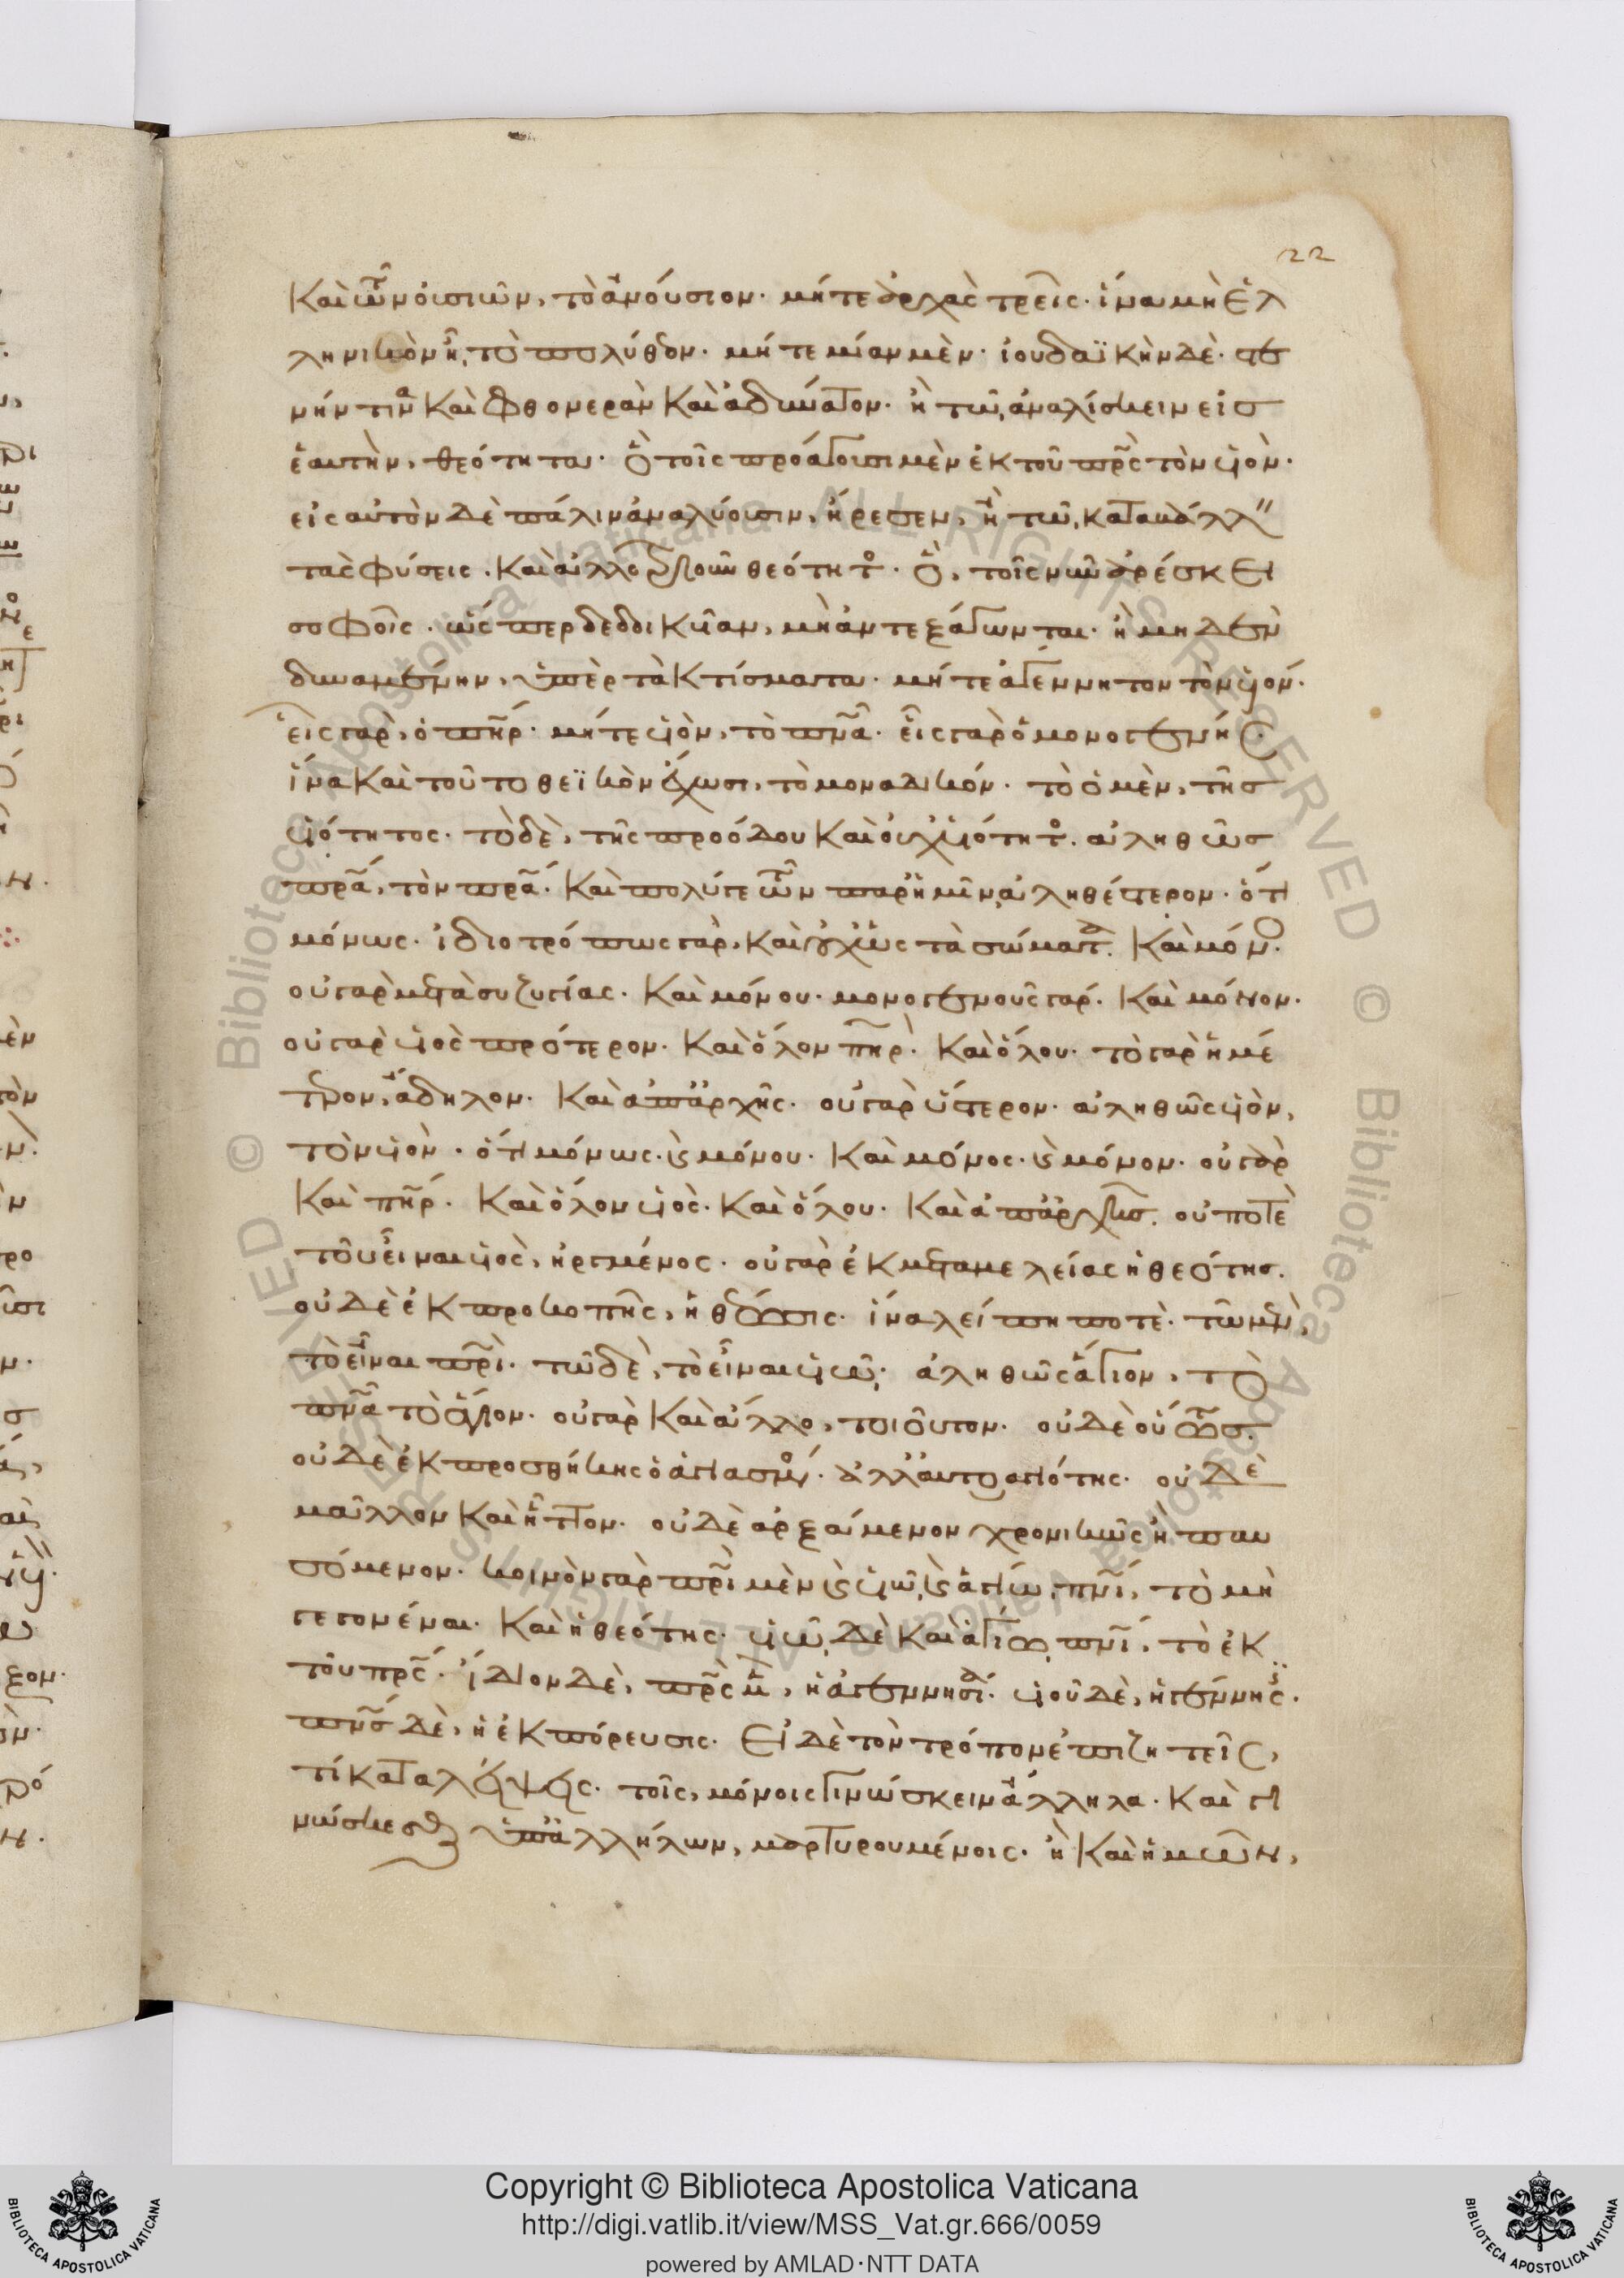 22
Καὶ τῶν οὐσιῶν, τὸ ἀνούσιον. μήτε ἀρχὰς τρεῖς. ἵνα μὴ ἑλ
ληνικὸν ᾖ, τὸ πολύθεον. μήτε μίαν μὲν. ἰουδαϊκὴν δὲ. στε
νήν τινα Καὶ φθονερὰν Καὶ ἀδύνατον. ἢ τῶ, ἀναλίσκειν εἰς
ἑαυτὴν, θεότητα. ὃ τοῖς προάγουσι μὲν ἐκ τοῦ πρς τὸν υἱὸν.
εἰς αὐτὸν δὲ πάλιν ἀναλύουσιν, ἤρεσεν, ἢ τῶ, καταβάλλειν
τὰς φύσεις. Καὶ ἀλλοτριοῦν θεότητος. ὃ, τοῖς νῦν ἀρέσκει
σοφοῖς. ὥσπερ δεδοικυῖαν, μὴ ἀντεξάγωνται. ἢ μηδὲν
δυναμένην, ὑπὲρ τὰ Κτίσματα. μήτε ἀγέννητον τὸν υἱόν.
εἷς γὰρ, ὁ πηρ. μήτε υἱὸν, τὸ πνα. εἷς γὰρ ὁ μονογενής.
ἵνα Καὶ τοῦτο θεϊκὸν ἔχωσι, τὸ μοναδικόν. τὸ ὁ μὲν, τῆς
υἱότητος. τὸ δὲ, τῆς προόδου Καὶ οὐχ υἱότητος. ἀληθῶς
πρα, τὸν πρα. Καὶ πολύ γε τῶν παρ ἡμῖν, ἀληθέστερον. ὅτι
μόνως. ἰδιοτρόπως γὰρ, Καὶ οὐχ ὡς τὰ σώματα. Καὶ μόνος.
οὐ γὰρ μετὰ συζυγίας. Καὶ μόνου. μονογενοῦς γάρ. Καὶ μόνον.
οὐ γὰρ υἱὸς πρότερον. Καὶ ὅλον πηρ. Καὶ ὅλου. τὸ γὰρ ἡμέ
τερον, ἄδηλον. Καὶ ἀπ ἀρχῆς. οὐ γὰρ ὕστερον. ἀληθῶς υἱὸν,
τὸν υἱὸν. ὅτι μόνως. Καὶ μόνου. Καὶ μόνος. Καὶ μόνον. οὐ γὰρ
Καὶ πηρ. Καὶ ὅλον υἱὸς. Καὶ ὅλου. Καὶ ἀπ ἀρχῆς. οὔποτε
τοῦ εἶναι υἱὸς, ἠργμένος. οὐ γὰρ ἐκ μεταμελείας ἡ θεότης.
οὐδὲ ἐκ προκοπῆς, ἡ θέωσις. ἵνα λείπη ποτὲ. τῶ μὲν,
τὸ εἶναι πρι. τῶ δὲ, τὸ εἶναι υἱῶ. ἀληθῶς ἅγιον, τὸ
πνα τὸ ἅγιον. οὐ γὰρ Καὶ ἄλλο, τοιοῦτον. οὐδὲ οὕτως.
οὐδὲ ἐκ προσθήκης ὁ ἁγιασμός. ἀλλ αὐτοαγιότης. οὐδὲ
μᾶλλον Καὶ ἧττον. οὐδὲ ἀρξάμενον χρονικῶς ἢ παυ
σόμενον. Κοινὸν γὰρ πρι μὲν Καὶ υἱῶ, Καὶ ἁγίω πνι, τὸ μὴ
γεγονέναι. Καὶ ἡ θεότης. υἱῶ δὲ Καὶ ἁγίω πνι, τὸ ἐκ
τοῦ πρς. ἴδιον δὲ, πρς μὲν, ἡ ἀγεννησία. υἱοῦ δὲ, ἡ γέννησις.
πνς δὲ, ἡ ἐκπόρευσις. Εἰ δὲ τὸν τρόπον ἐπιζητεῖς,
τί καταλείψεις. τοῖς, μόνοις γινώσκειν ἄλληλα. Καὶ γι
νώσκεσθαι ὑπ ἀλλήλων, μαρτυρουμένοις. ἢ Καὶ ἡμῶν,